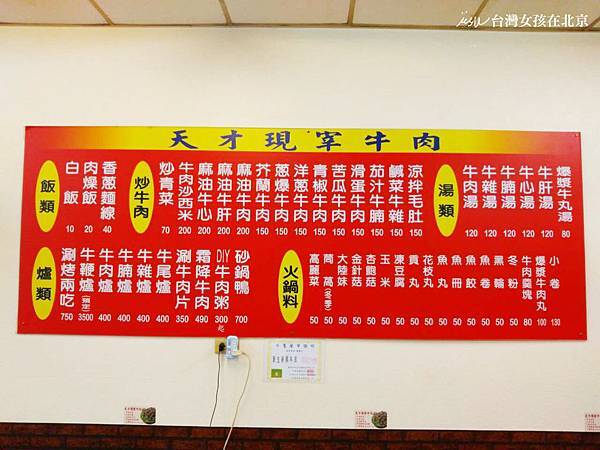 台灣女孩在北京
天才現宰牛肉
飯類
白飯 10
肉燥飯 20
香蔥麵線 40
炒牛肉
炒青菜 70
牛肉沙西米 200
麻油牛心 200
麻油牛肝 200
麻油牛肉 200
芥蘭牛肉 150
蔥爆牛肉 150
洋蔥牛肉 150
青椒牛肉 150
苦瓜牛肉 150
滑蛋牛肉 150
茄汁牛腩 150
鹹菜牛雜 150
涼拌毛肚 150
湯類
牛肉湯 120
牛雜湯 120
牛腩湯 120
牛心湯 120
牛肝湯 120
爆漿牛丸湯 80
爐類
涮烤兩吃 750
牛鞭爐(預定) 3500
牛肉爐 400
牛腩爐 400
牛雜爐 400
牛尾爐 400
涮牛肉片 350
霜降牛肉 490
DIY牛肉粥 300起
砂鍋鴨 700
火鍋料
高麗菜 50
茼萵(冬季) 50
大陸妹 50
金針菇 50
杏鮑菇 50
玉米 50
凍豆腐 50
貢丸 50
花枝丸 50
魚丸 50
魚冊 50
魚餃 50
魚卷 50
黑輪 50
冬粉 50
牛肉羹塊 80
爆漿牛肉丸 100
小卷 130